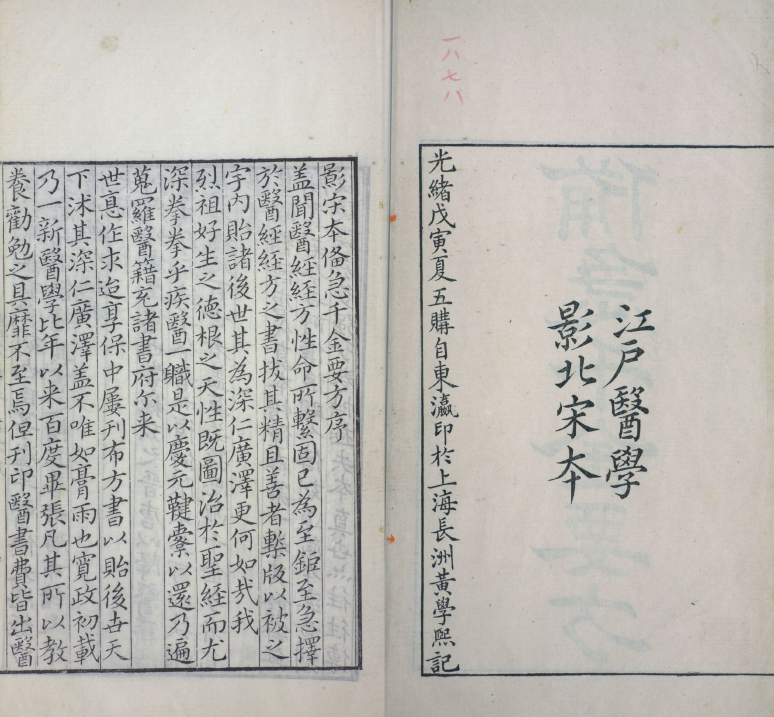 一八七八
江戶醫學
影北宋本
光緒戊寅夏五購自東瀛印於上海長洲黃學熙記
影宋本俻急千金要方序
盖聞醫經經方性命所繫固已為至鉅至急擇
於醫經經方之書拔其精且善者槧版以被之
宇内貽諸後世其為深仁廣澤更何如㢤我
烈祖好生之德根之天性既圖治於聖經而尤
深拳拳乎疾醫一職是以慶元鞬櫜以還乃遍
蒐羅醫籍充諸書府尒来
世悳作求迨享保中屢刊布方書以貽後世天
下沐其深仁廣澤盖不唯如膏雨也寬政初載
乃一新醫學比年以来百度畢張凡其所以教
養勸勉之具靡不至焉但刊印醫書費皆出醫